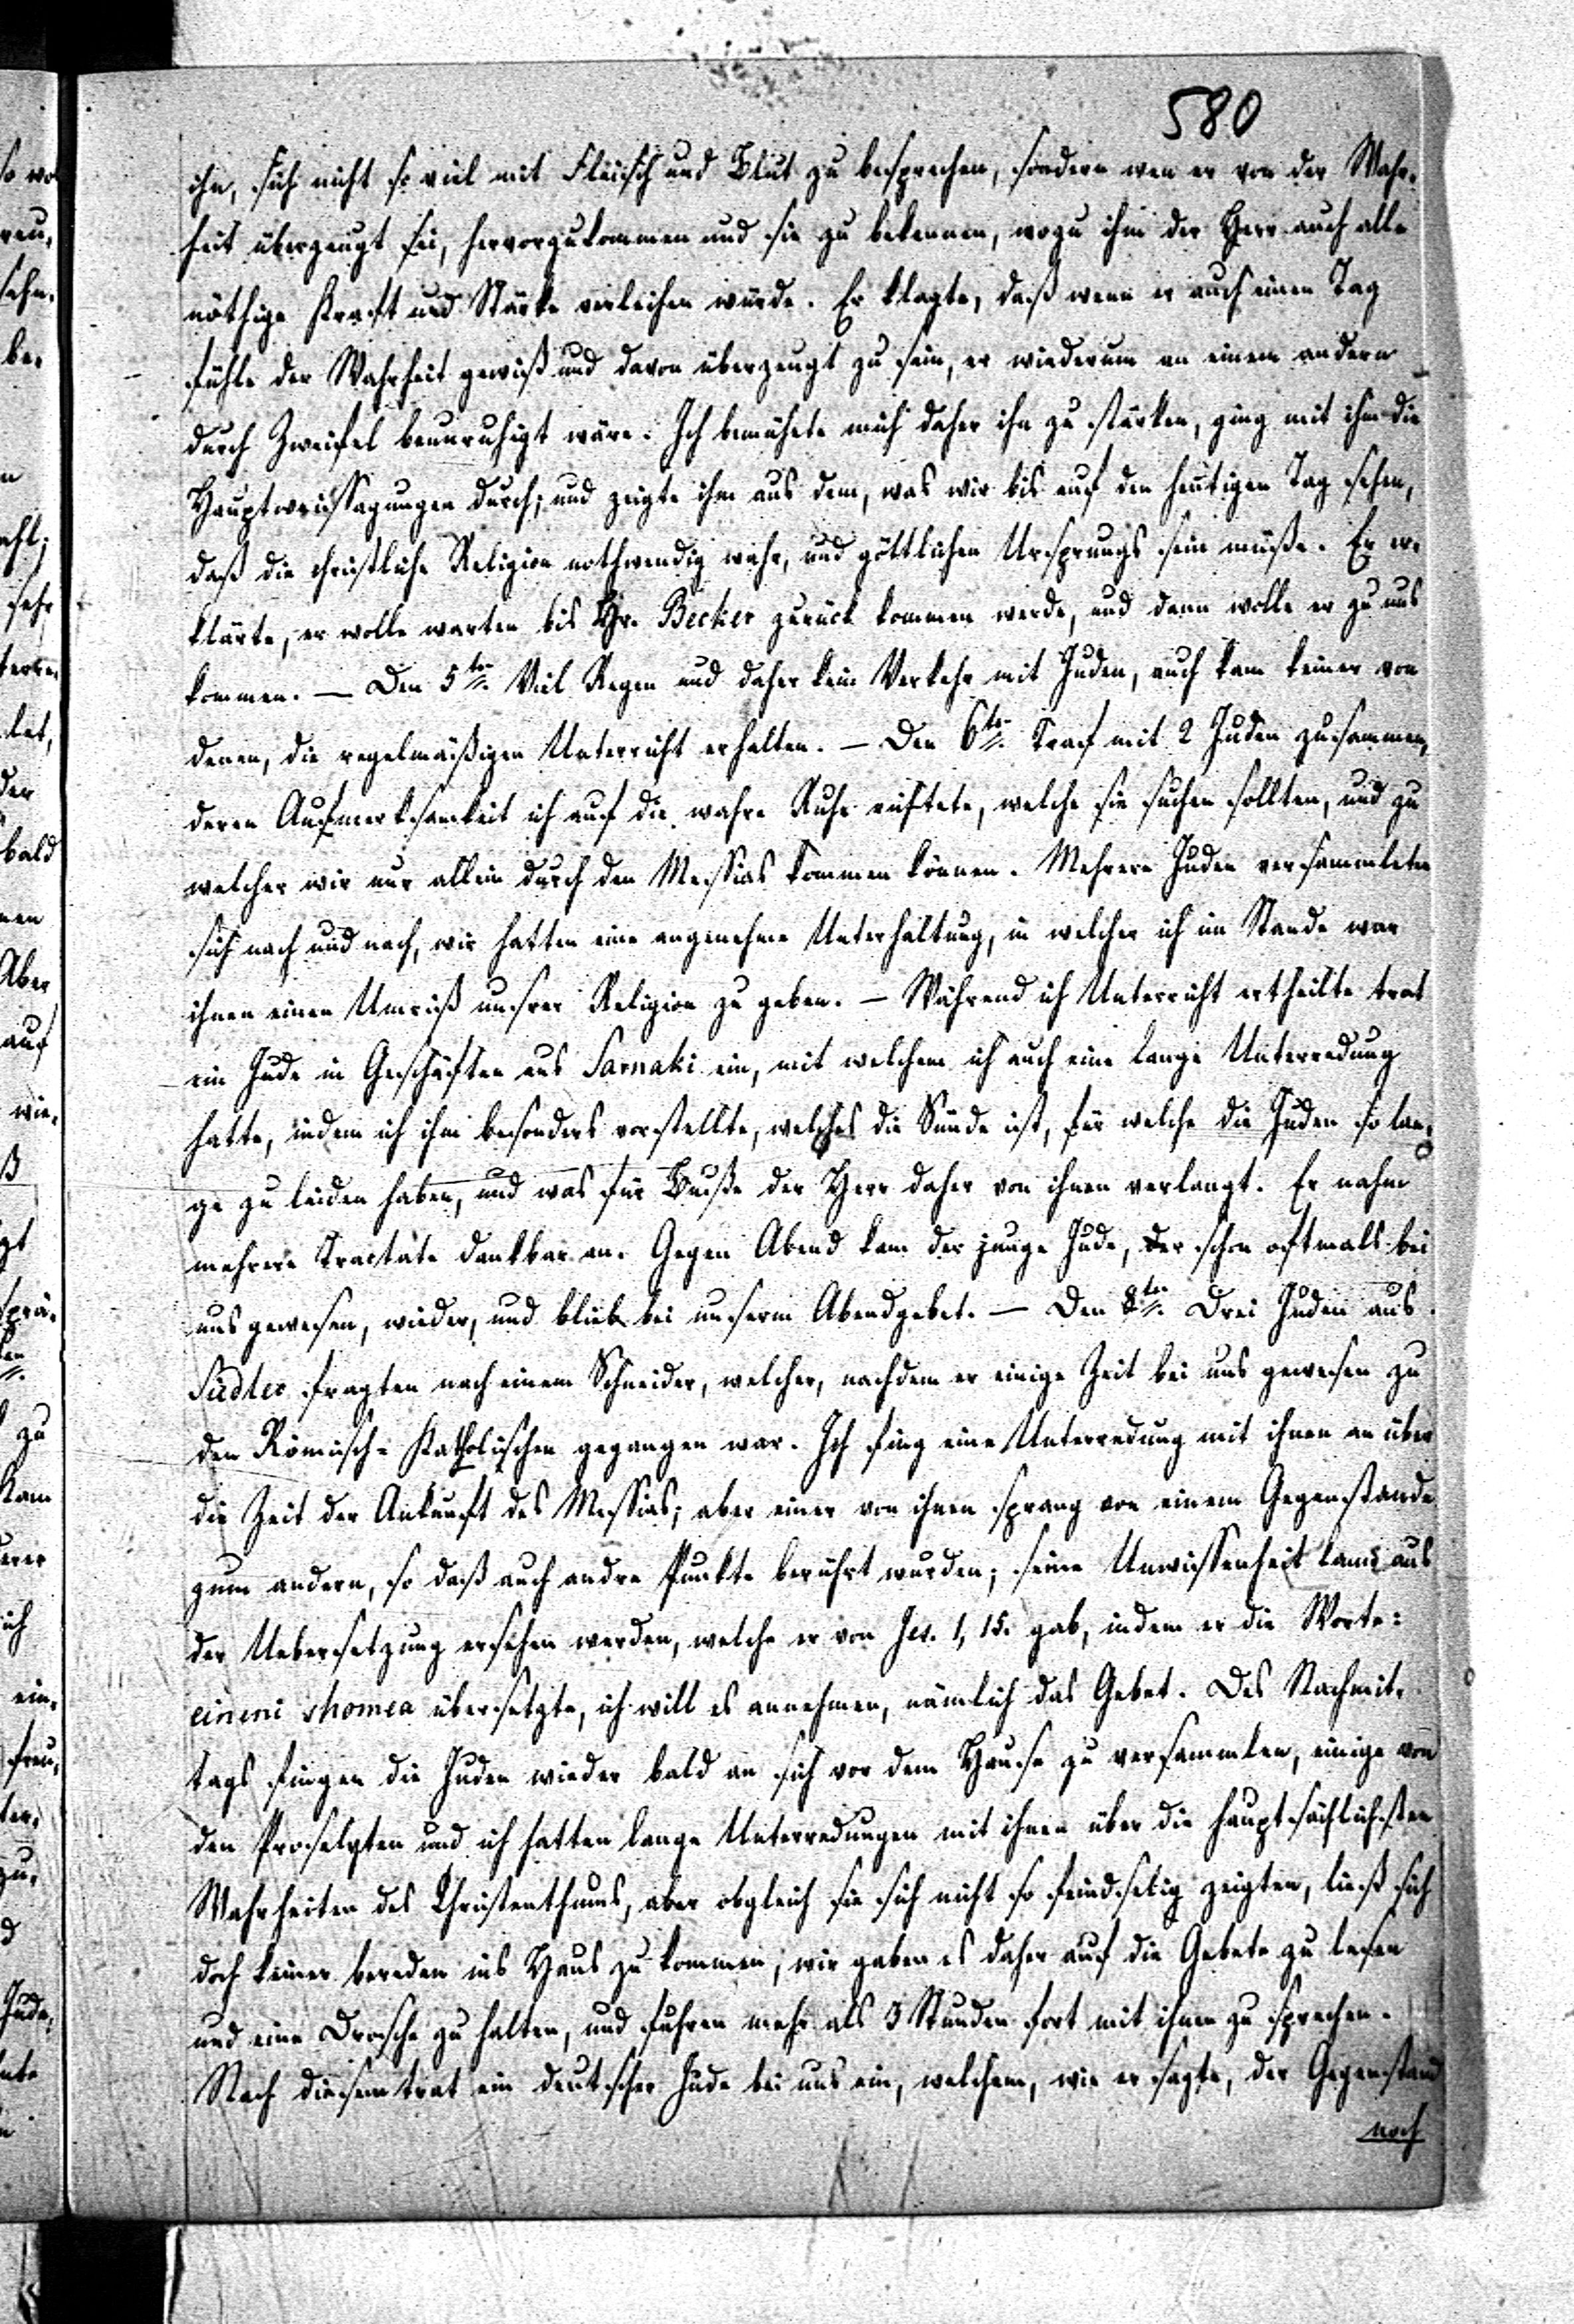 580
ihn, sich nicht so viel mit Fleisch und Blut zu besprechen, sondern wen er von der Wahr-
heit überzeugt sei, hervorzukommen und sie zu bekennen, wozu ihm der Herr auch alle
nöthige Kraft und Stärke verleihen würde. Er klagte, daß wenn er auch einen Tag
fühle der Wahrheit gewiß und davon überzeugt zu sein, er wiederum an einem andern
durch Zweifel beunruhigt wäre. Ich bemühete mich daher ihn zu stärken, ging mit ihm die
Hauptweissagungen durch; und zeigte ihm aus dem, was wir bis auf den heutigen Tag sehen,
daß die christliche Religion nothwendig wahr, und göttlichen Ursprungs sein müße. Er er-
klärte, er wolle warten bis Hr. Becker zurück kommen werde, und dann wolle er zu uns
kommen. — Den 5ten Viel Regen und daher kein Verkehr mit Juden, auch kam keiner von
denen, die regelmäßigen Unterricht erhalten. — Den 6ten Traf mit 2 Juden zusammen,
deren Aufmerksamkeit ich auf die wahre Ruhe richtete, welche sie suchen sollten, und zu
welcher wir nur allein durch den Messias kommen können. Mehrere Juden versammleten
sich nach und nach, wir hatten eine angenehme Unterhaltung, in welcher ich im Stande war
ihnen einen Umriß unsrer Religion zu geben. — Während ich Unterricht ertheilte trat
ein Jude in Geschäften aus Sarnaki ein, mit welchem ich auch eine lange Unterredung
hatte, indem ich ihm besonders vorstellte, welches die Sünde ist, für welche die Juden so lan-
ge zu leiden haben, und was für Buße der Herr daher von ihnen verlangt. Er nahm
mehrere Tractate dankbar an. Gegen Abend kam der junge Jude, der schon oftmals bei
uns gewesen, wieder, und blieb bei unserm Abendgebet. — Den 8ten Drei Juden aus
Sidlec fragten nach einem Schneider, welcher, nachdem er einige Zeit bei uns gewesen zu
den Römisch-Katholischen gegangen war. Ich fing eine Unterredung mit ihnen an über
die Zeit der Ankunft des Messias; aber einer von ihnen sprang von einem Gegenstande
zum andern, so daß auch andre Punkte berührt wurden; seine Unwissenheit kann aus
der Uebersetzung ersehen werden, welche er von Jes. 1, 15. gab, indem er die Worte:
eineni shomea übersetzte, ich will es annehmen, nämlich das Gebet. Des Nachmit-
tags fingen die Juden wieder bald an sich vor dem Hause zu versammlen, einige von
den Proselyten und ich hatten lange Unterredungen mit ihnen über die hauptsächlichsten
Wahrheiten des Christenthums, aber obgleich sie sich nicht so feindselig zeigten, ließ sich
doch keiner bereden ins Haus zu kommen; wir gaben es daher auf die Gebete zu lesen
und eine Drosche zu halten, und fuhren mehr als 3 Stunden fort mit ihnen zu sprechen.
Nach diesem trat ein deutscher Jude bei uns ein, welchem, wie er sagte, der Gegenstand
noch